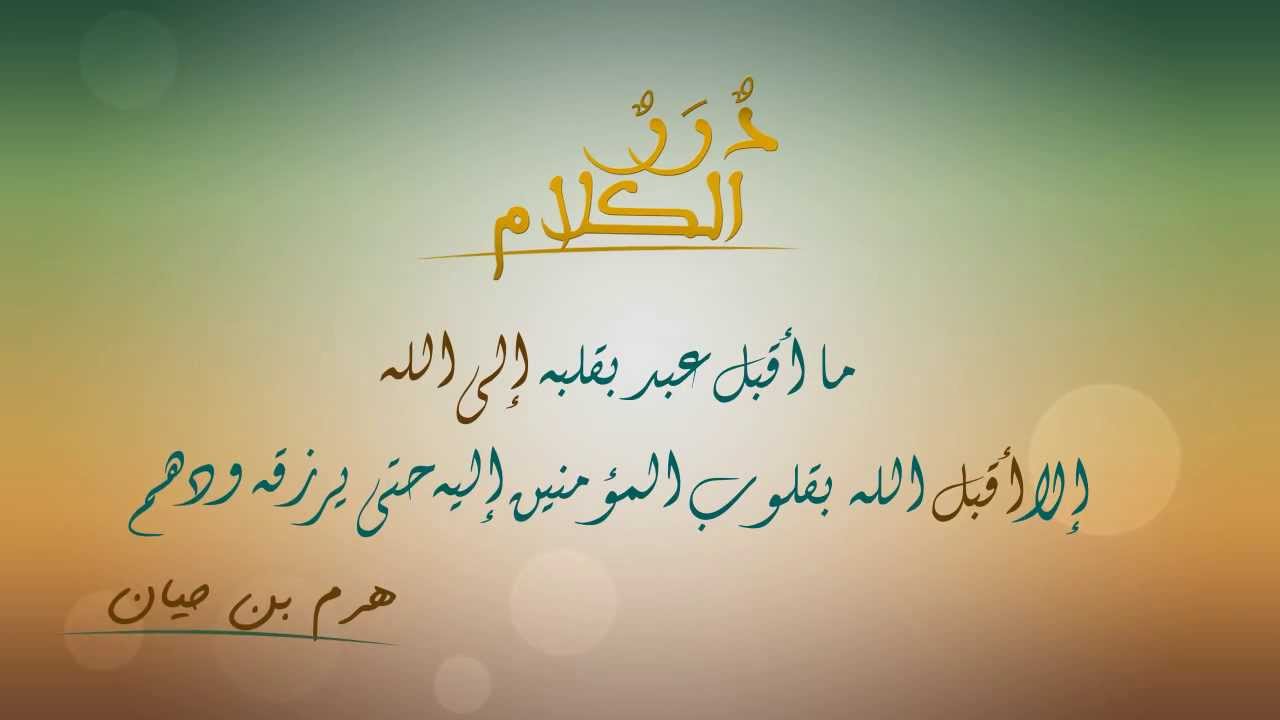 دُرَرٌ
الكلام
ما أقبل عبد بقلبه إلى الله
إلا أقبل الله بقلوب المؤمنين إليه حتى يرزقه ودهم
هرم بن حيان